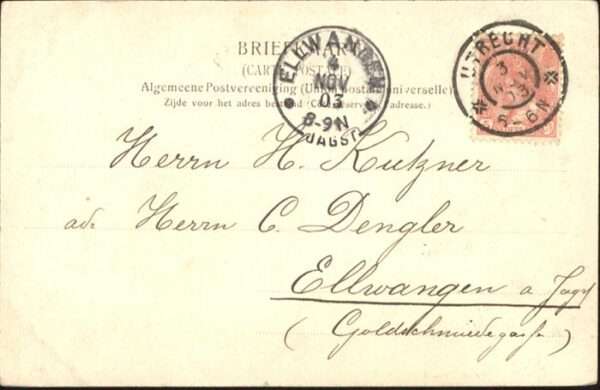 BRIEFKAART
(CARTE POSTALE)
Algemeene Postvereeniging (Union postale universelle)
Zijde voor het adres bestemd (Côté réservé à l'adresse.)
ELLWANGEN
4
NOV
03
8-9N
JAGST
UTRECHT
3
NOV
03
5-6N
Herrn H. Kutzner
adr. Herrn C. Dengler
Ellwangen a Jagst
(Goldschmiedegasse)